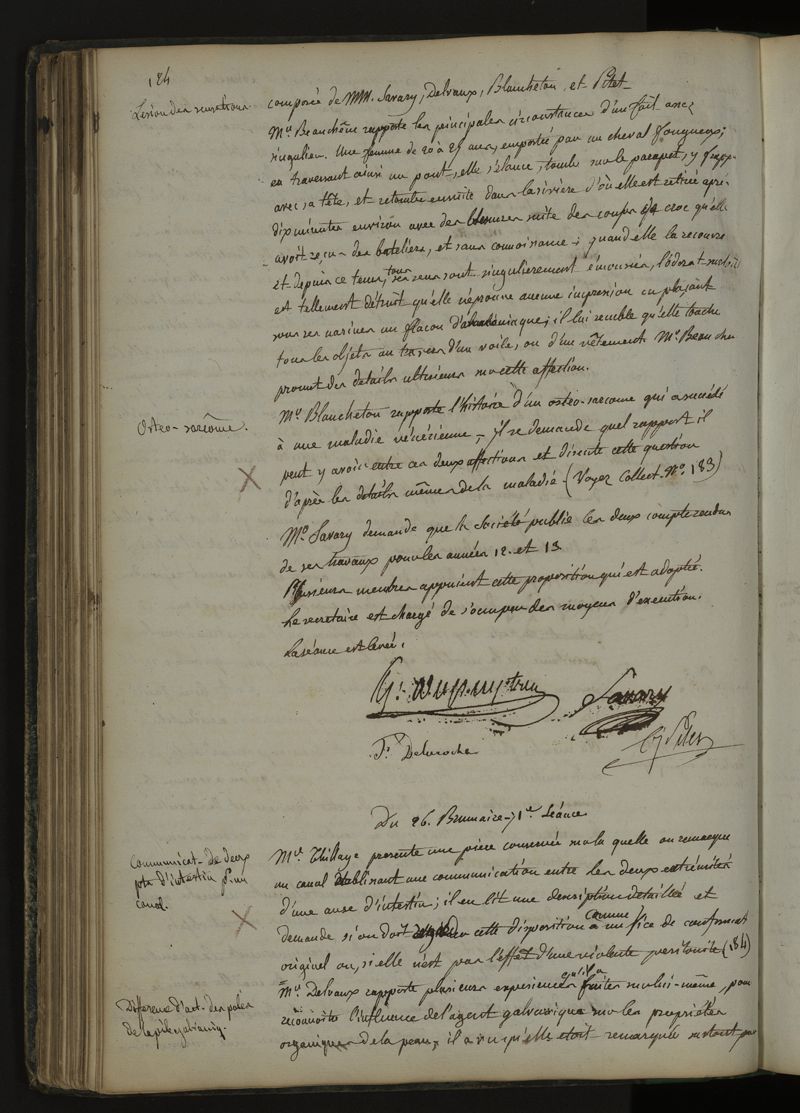 184
Lésion des sensations
composée de MM. Savary, Delvaux, Blancheton, et Pitet
Mr. Beauchêne rapporte les principales circonstances d'un fait assez
singulier. Une femme de 20 à 25 ans, emportée par un cheval fougueux;
en traversant ainsi un pont, elle s'élance, tombe sur le parapet, y frappe
avec sa tête, et retombe ensuite dans la rivière d'où elle est retirée après
dix minutes environ avec des blessures suite des coups de croc qu'elle
avoit reçus des bateliers, et sans connoissance; quand elle la recouvre
et depuis ce tems, tous ses sens sont singulierement émoussés, l'odorat
est tellement détruit qu'elle n'éprouve aucune impression en plaçant
sous ses narines un flacon d'ammoniaque; il lui semble qu'elle touche
tous les objets au travers d'un voile, ou d'un vêtement. Mr. Beauchêne
promet des détails ultérieurs sur cette affection.
Ostéo-sarcôme.
Mr. Blancheton rapporte l'histoire d'un ostéo-sarcome qui a succédé
à une maladie vénérienne, il se demande quel rapport il
peut y avoir entre ces deux affections et discute cette question
d'après les détails mêmes de la maladie. (Voyez Collect. No. 183)
Mr. Savary demande que la Société publie les deux comptes rendus
de ses travaux pour les années 12 et 13
Plusieurs membres appuient cette proposition qui est adoptée.
Le secretaire est chargé de s'occuper des moyens d'exécution.
La séance est levée.
G. Dupuytren Savary
F. Delaroche
Du 26. Brumaire. 71e. Séance
Communicat. de deux
pts d'intestin p. un
canal.
Mr. Thillaye presente une pièce conservée sur la quelle on remarque
un canal établissant une communication entre les deux extrémités
d'une anse d'intestin; il en lit une description détaillée et
demande si on doit cette disposition comme un vice de conformat.
originel ou, si elle n'est pas l'effet d'une violente peritonite (184)
Différence d'act. des poles
de la pile galvaniq.
Mr. Delvaux rapporte plusieurs experiences qu'il a faites sur lui-même, pour
reconnoitre l'influence de l'agent galvanique sur les propriétés
organiques de la peau, il a vu qu'elle étoit remarquée surtout par